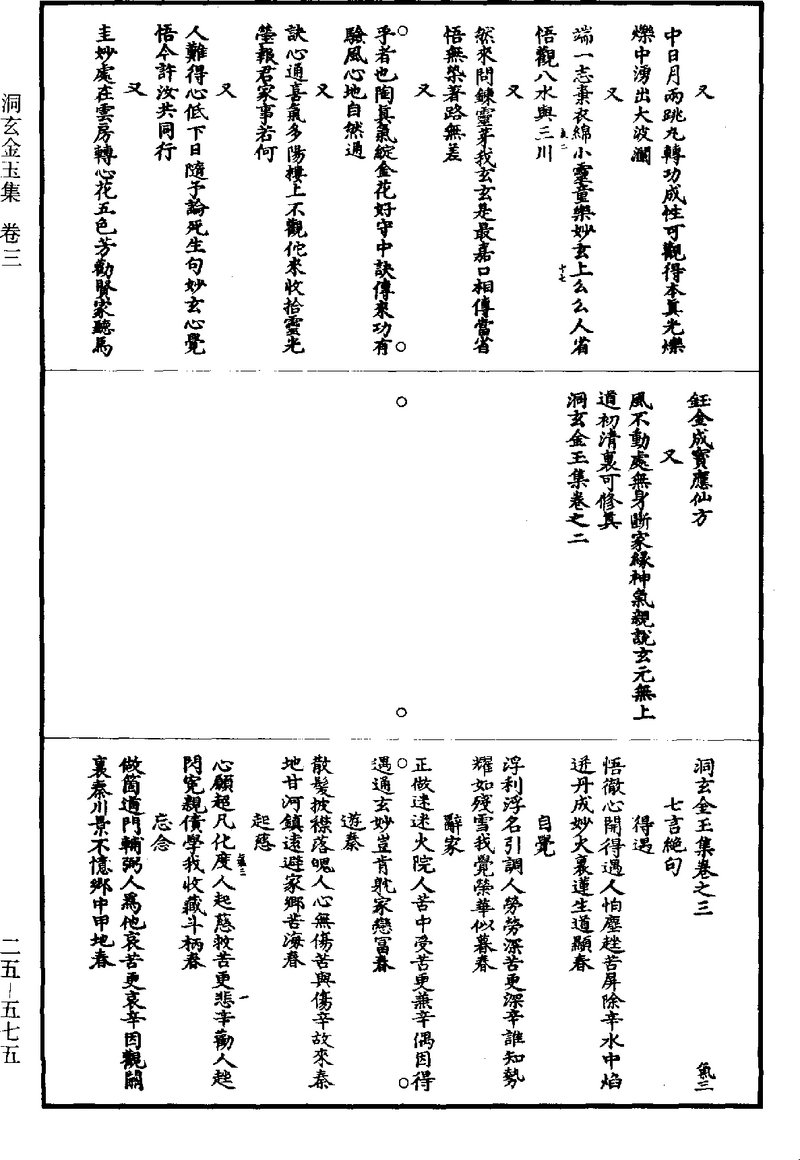 洞玄金玉集 卷三
二五—五七五
又
中日月兩跳丸轉功成性可觀得本真光爍
爍中湧出大波瀾
又
端一志棄衣綿小靈童樂妙玄上么么人省
悟觀八水與三川
又
然來問鍊靈芽我玄玄是最嘉口相傳當省
悟無染著路無差
又
乎者也陶真氣綻金花好守中訣傳來功有
驗風心地自然通
又
訣心通喜氣多陽樓上不觀佗來收拾靈光
瑩報君家事若何
又
人難得心低下日隨予論死生句妙玄心覺
悟今許汝共同行
又
圭妙處在雲房轉心花五色芳勸賢家聽馬
鈺金成寶應仙方
又
風不動處無身斷家緣神氣親說玄元無上
道初清裏可修真
洞玄金玉集卷之二
洞玄金玉集卷之三
氣三
七言絕句
得遇
悟徹心開得遇人怕塵趖苦屏除辛水中焰
迸丹成妙火裏蓮生道顯春
自覺
浮利浮名引調人勞勞深苦更深辛誰知勢
耀如殘雪我覺榮華似暮春
辭家
正做迷迷火院人苦中受苦更兼辛偶因得
遇通玄妙豈肯躭家戀富春
遊秦
散髮披襟落魄人心無傷苦與傷辛故來秦
地甘河鎮遠避家鄉苦海春
起慈
心願超凡化度人起慈救苦更悲辛勸人趖
閃冤親債學我收藏斗柄春
忘念
做箇道門輔弼人為他哀苦更哀辛因觀關
裏秦川景不憶鄉中甲地春